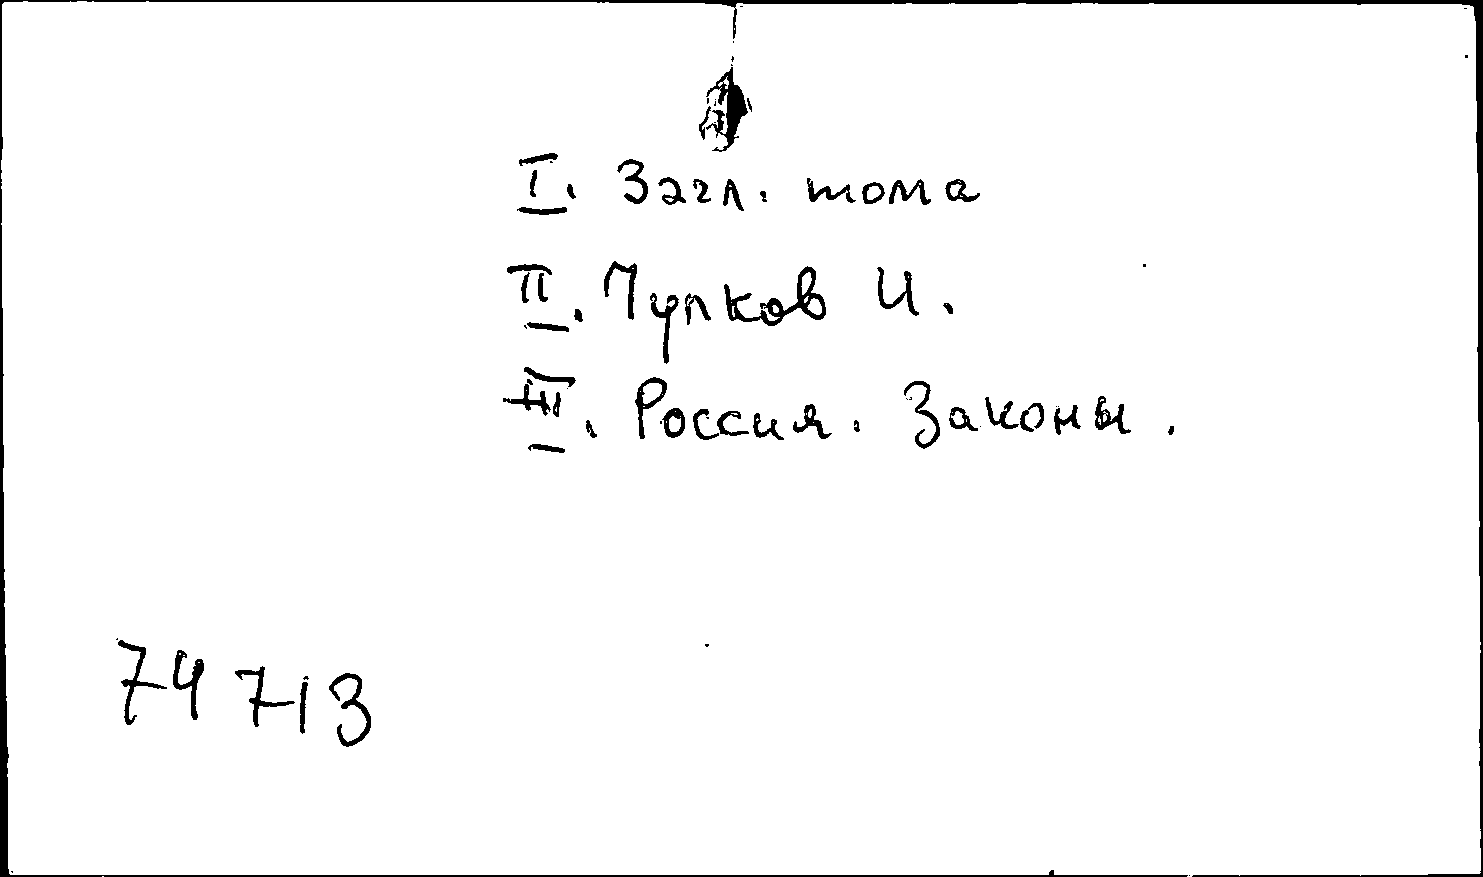 I. Загл. тома
II. Пупков И.
III. Россия. Законы.
74713